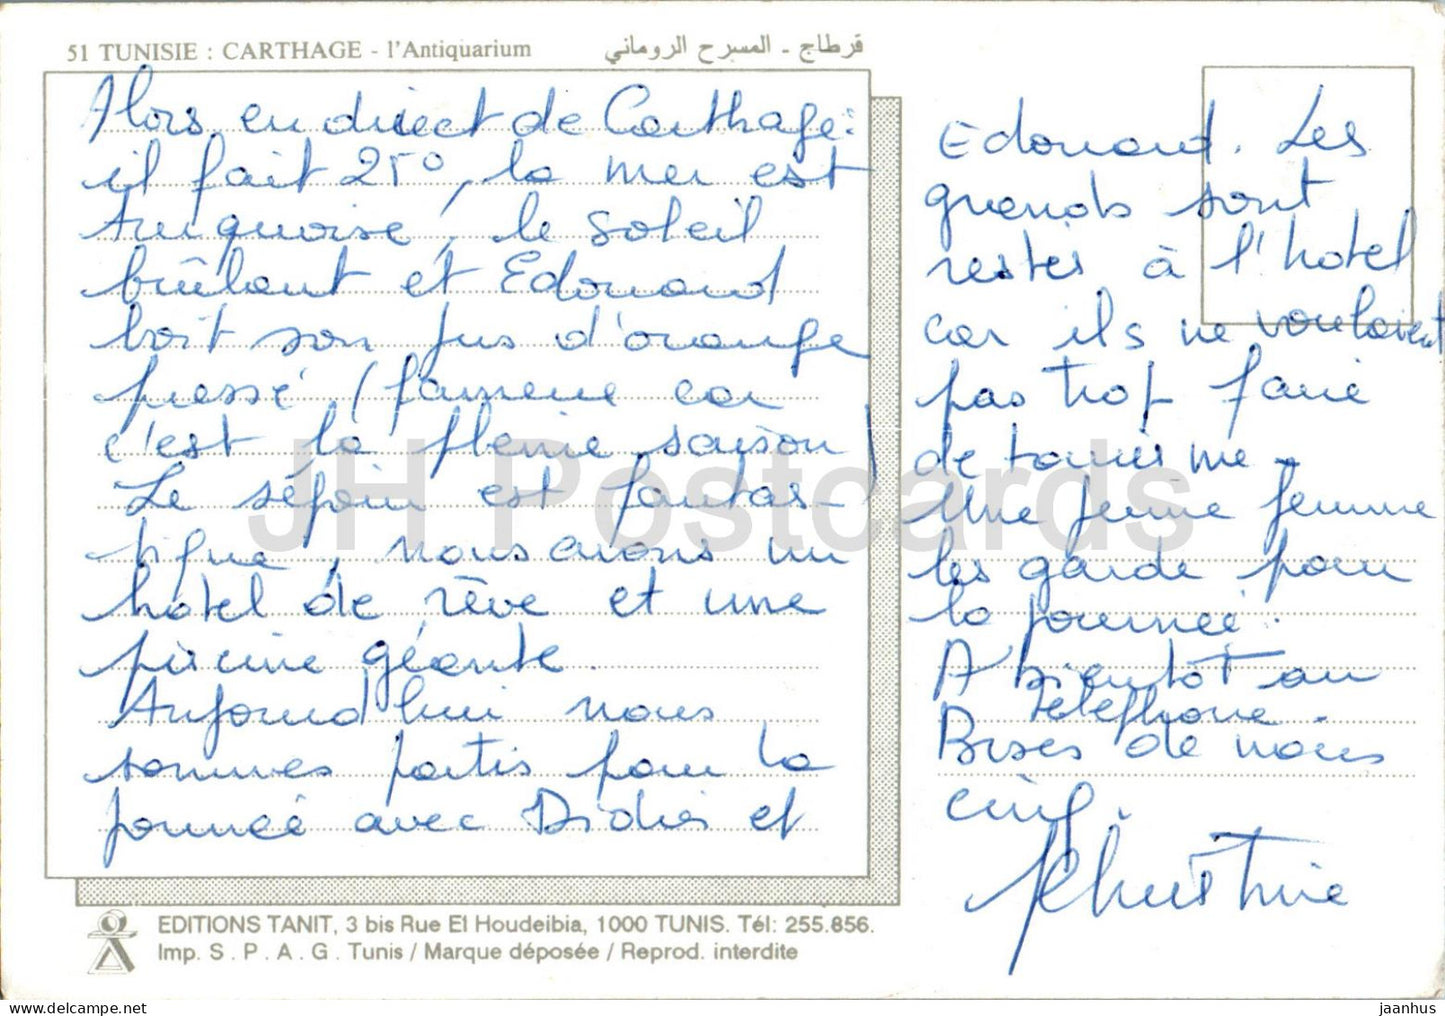 51 TUNISIE : CARTHAGE - l'Antiquarium
قرطاج - المسرح الروماني
Alors, en direct de Carthage :
il fait 25°, la mer est
turquoise, le soleil
brûlant et Edouard
boit son jus d'orange
pressé (j'amène car
c'est la pleine saison)
Le séjour est fantas-
tique, nous avons un
hotel de rêve et une
piscine géante.
Aujourd'hui nous
sommes partis pour la
journée avec Didier et
Edouard. Les
grands sont
restés à l'hotel
car ils ne voulaient
pas trop faire
de tourisme -
Une jeune femme
les garde pour
la journée.
A bientôt au
téléphone.
Bises de nous
cinq.
Christine
EDITIONS TANIT, 3 bis Rue El Houdeibia, 1000 TUNIS. Tél: 255.856.
Imp. S . P . A . G . Tunis / Marque déposée / Reprod. interdite
JH Postcards
jaanhus | ePostcard.me